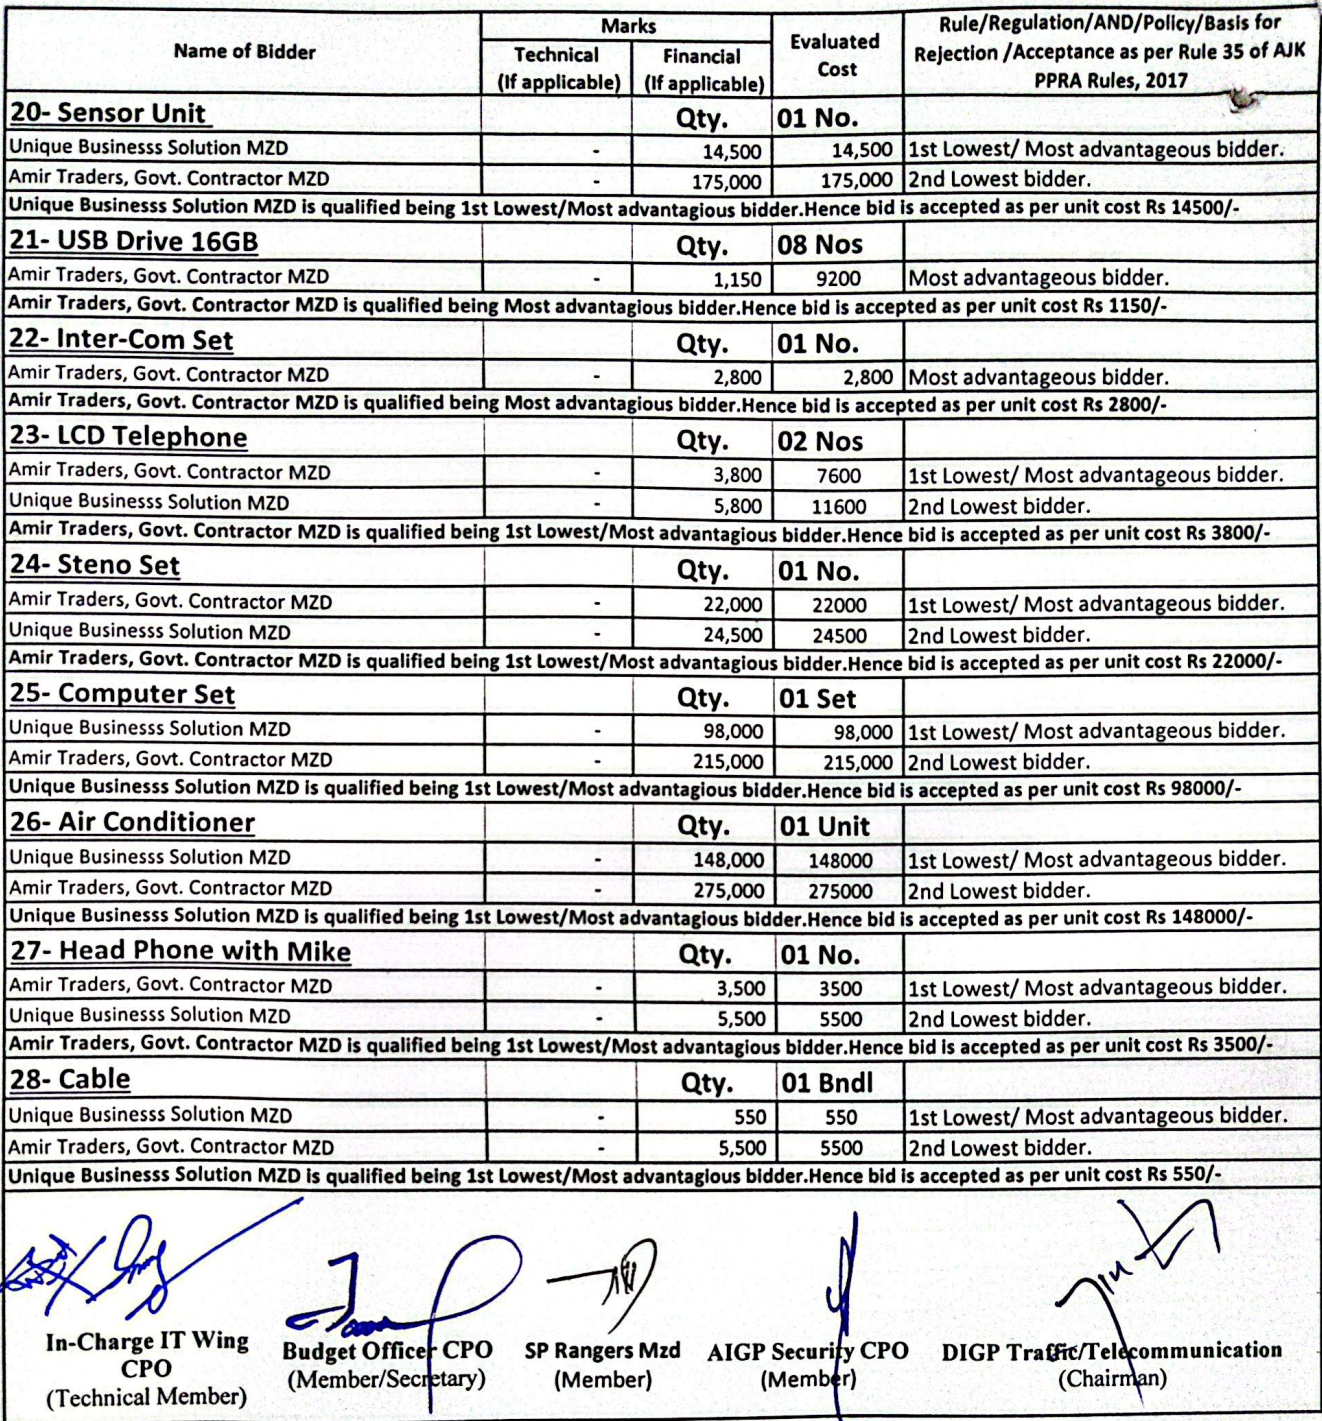 Name of Bidder
Marks
Technical
(If applicable)
Financial
(If applicable)
Evaluated
Cost
Rule/Regulation/AND/Policy/Basis for
Rejection /Acceptance as per Rule 35 of AJK
PPRA Rules, 2017
20- Sensor Unit Qty. 01 No.
Unique Businesss Solution MZD - 14,500 14,500 1st Lowest/ Most advantageous bidder.
Amir Traders, Govt. Contractor MZD - 175,000 175,000 2nd Lowest bidder.
Unique Businesss Solution MZD is qualified being 1st Lowest/Most advantagious bidder.Hence bid is accepted as per unit cost Rs 14500/-
21- USB Drive 16GB Qty. 08 Nos
Amir Traders, Govt. Contractor MZD - 1,150 9200 Most advantageous bidder.
Amir Traders, Govt. Contractor MZD is qualified being Most advantagious bidder.Hence bid is accepted as per unit cost Rs 1150/-
22- Inter-Com Set Qty. 01 No.
Amir Traders, Govt. Contractor MZD - 2,800 2,800 Most advantageous bidder.
Amir Traders, Govt. Contractor MZD is qualified being Most advantagious bidder.Hence bid is accepted as per unit cost Rs 2800/-
23- LCD Telephone Qty. 02 Nos
Amir Traders, Govt. Contractor MZD - 3,800 7600 1st Lowest/ Most advantageous bidder.
Unique Businesss Solution MZD - 5,800 11600 2nd Lowest bidder.
Amir Traders, Govt. Contractor MZD is qualified being 1st Lowest/Most advantagious bidder.Hence bid is accepted as per unit cost Rs 3800/-
24- Steno Set Qty. 01 No.
Amir Traders, Govt. Contractor MZD - 22,000 22000 1st Lowest/ Most advantageous bidder.
Unique Businesss Solution MZD - 24,500 24500 2nd Lowest bidder.
Amir Traders, Govt. Contractor MZD is qualified being 1st Lowest/Most advantagious bidder.Hence bid is accepted as per unit cost Rs 22000/-
25- Computer Set Qty. 01 Set
Unique Businesss Solution MZD - 98,000 98,000 1st Lowest/ Most advantageous bidder.
Amir Traders, Govt. Contractor MZD - 215,000 215,000 2nd Lowest bidder.
Unique Businesss Solution MZD is qualified being 1st Lowest/Most advantagious bidder.Hence bid is accepted as per unit cost Rs 98000/-
26- Air Conditioner Qty. 01 Unit
Unique Businesss Solution MZD - 148,000 148000 1st Lowest/ Most advantageous bidder.
Amir Traders, Govt. Contractor MZD - 275,000 275000 2nd Lowest bidder.
Unique Businesss Solution MZD is qualified being 1st Lowest/Most advantagious bidder.Hence bid is accepted as per unit cost Rs 148000/-
27- Head Phone with Mike Qty. 01 No.
Amir Traders, Govt. Contractor MZD - 3,500 3500 1st Lowest/ Most advantageous bidder.
Unique Businesss Solution MZD - 5,500 5500 2nd Lowest bidder.
Amir Traders, Govt. Contractor MZD is qualified being 1st Lowest/Most advantagious bidder.Hence bid is accepted as per unit cost Rs 3500/-
28- Cable Qty. 01 Bndl
Unique Businesss Solution MZD - 550 550 1st Lowest/ Most advantageous bidder.
Amir Traders, Govt. Contractor MZD - 5,500 5500 2nd Lowest bidder.
Unique Businesss Solution MZD is qualified being 1st Lowest/Most advantagious bidder.Hence bid is accepted as per unit cost Rs 550/-
In-Charge IT Wing
CPO
(Technical Member)
Budget Officer CPO
(Member/Secretary)
SP Rangers Mzd
(Member)
AIGP Security CPO
(Member)
DIGP Traffic/Telecommunication
(Chairman)